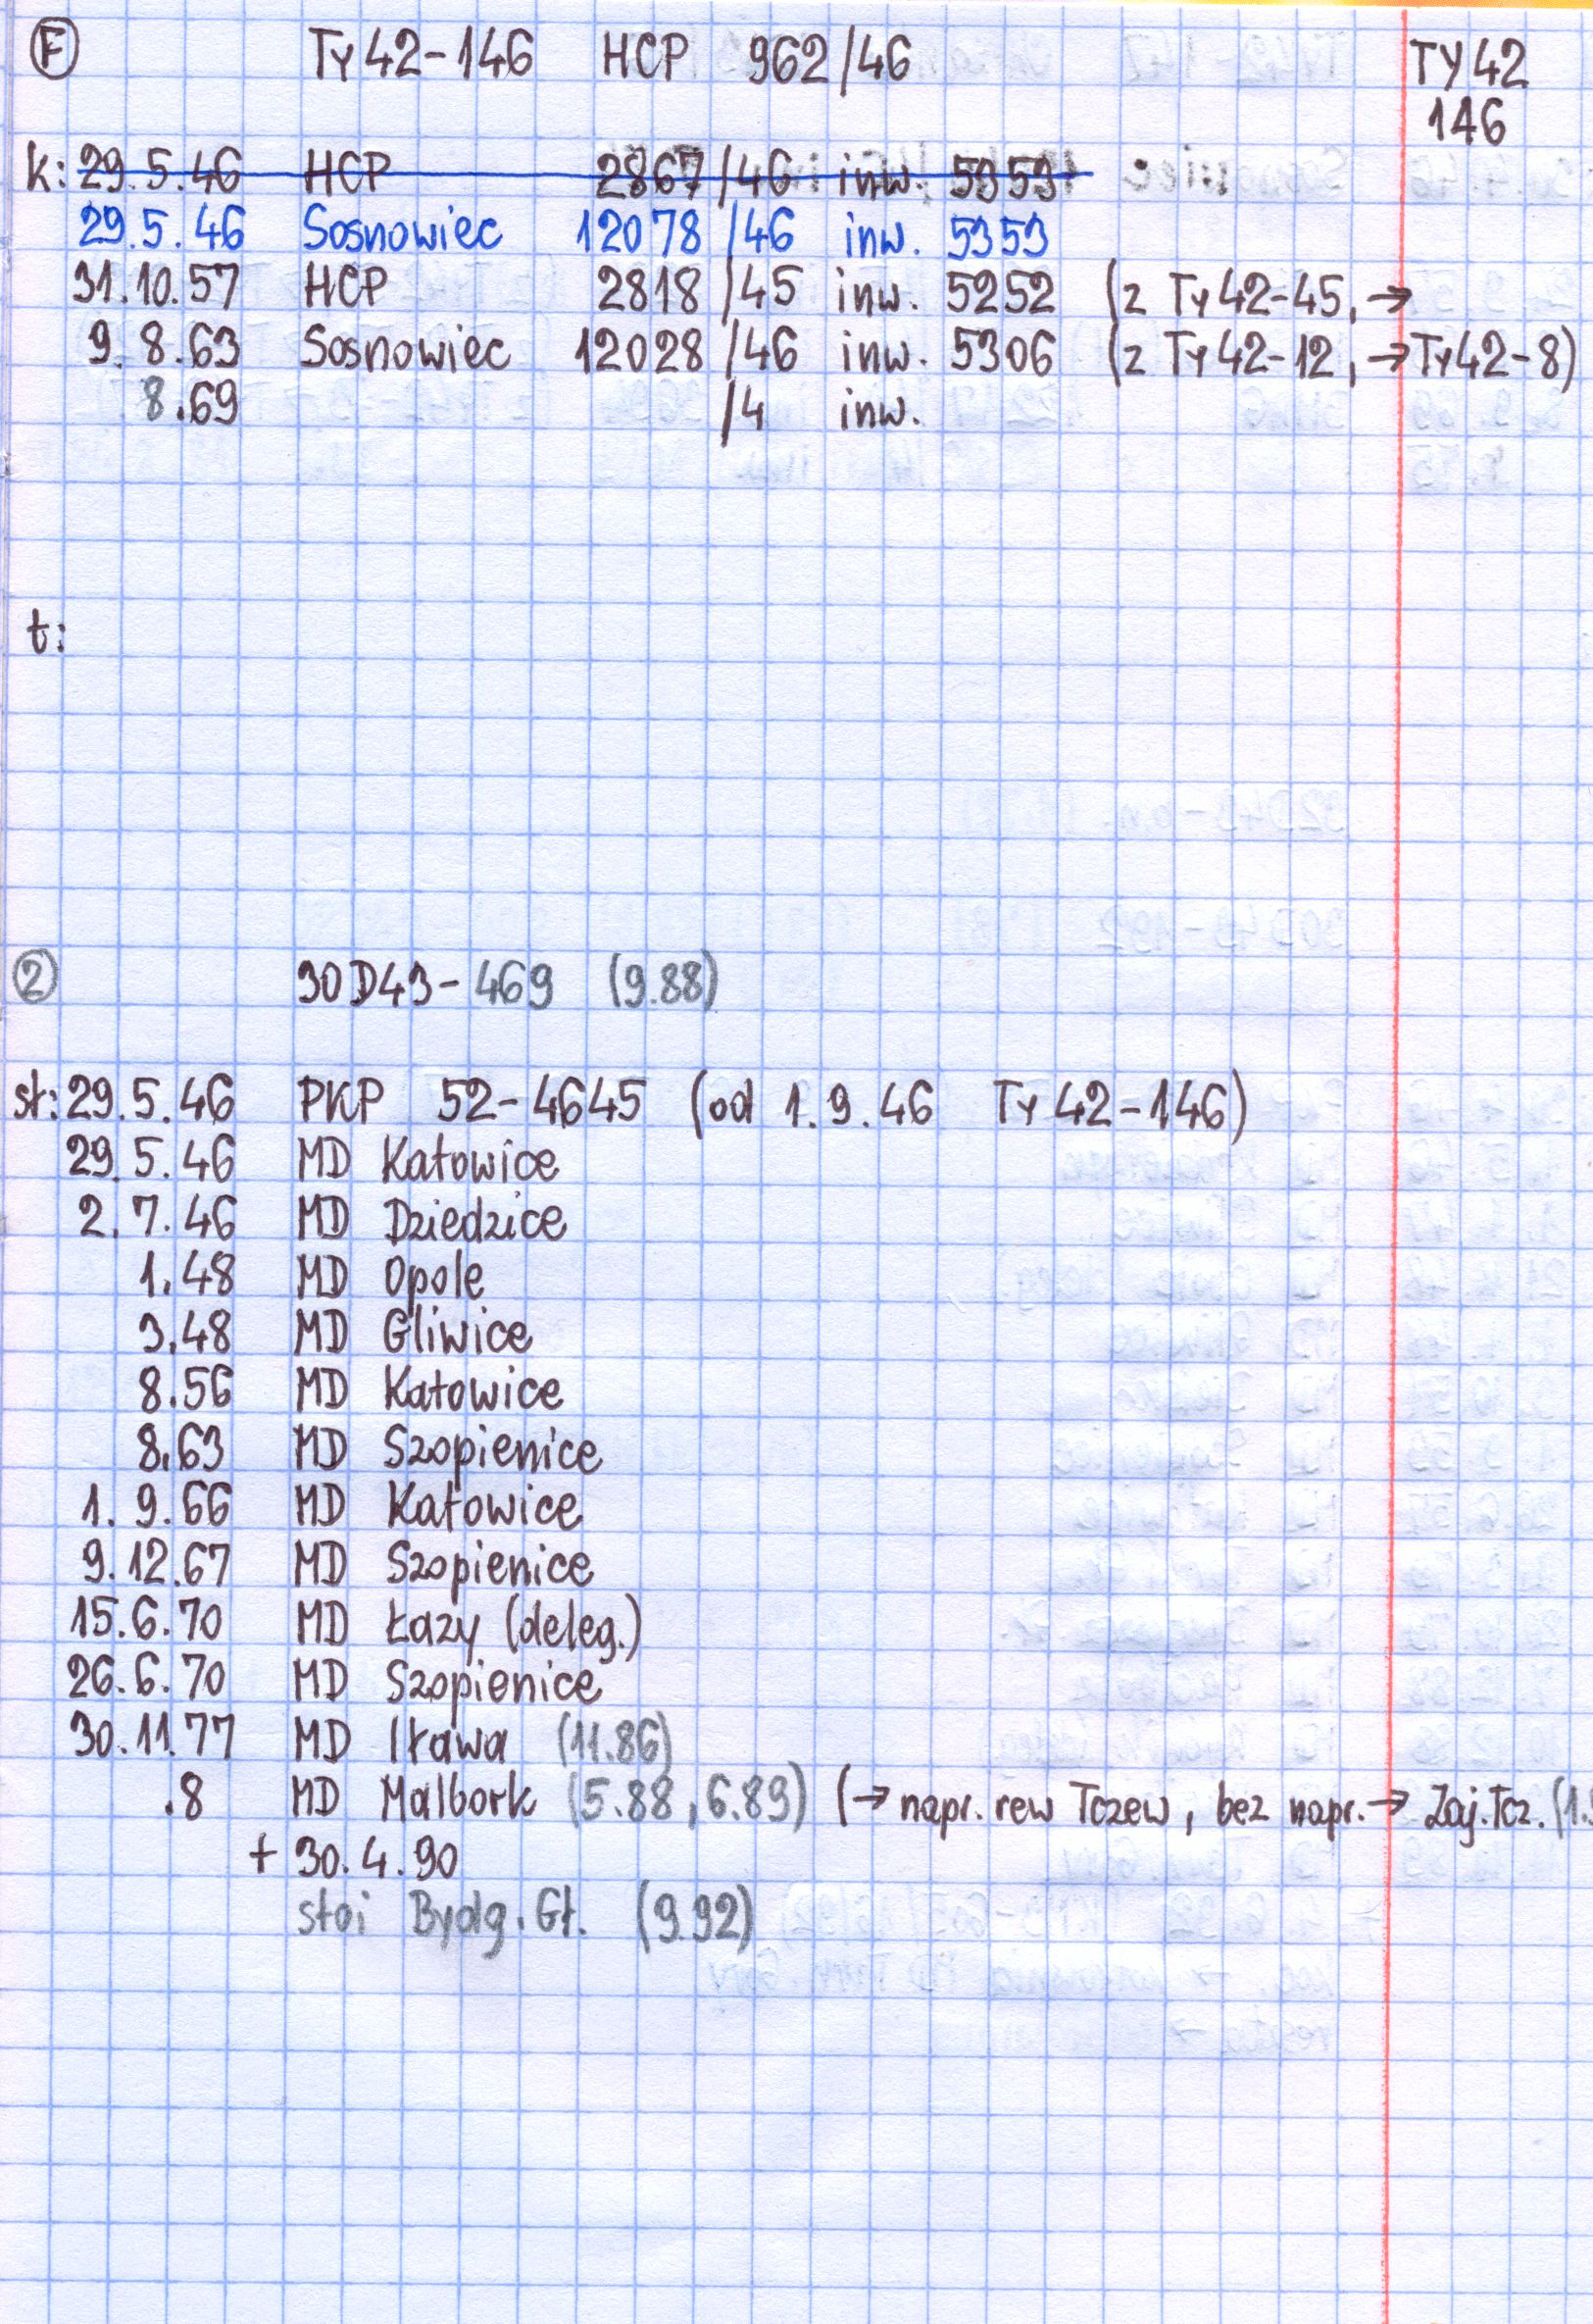 F Ty42-146 HCP 962/46 TY42
146
k: 29.5.46 HCP 2867/46 inw. 5353
29.5.46 Sosnowiec 12078/46 inw. 5353
31.10.57 HCP 2818/45 inw. 5252 (z Ty42-45, →
9.8.63 Sosnowiec 12028/46 inw. 5306 (z Ty42-12, → Ty42-8)
8.69 /4 inw.
t:
2 30D43-469 (9.88)
st: 29.5.46 PKP 52-4645 (od 1.9.46 Ty42-146)
29.5.46 MD Katowice
2.7.46 MD Dziedzice
1.48 MD Opole
3.48 MD Gliwice
8.56 MD Katowice
8.63 MD Szopienice
1.9.66 MD Katowice
9.12.67 MD Szopienice
15.6.70 MD Łazy (deleg.)
26.6.70 MD Szopienice
30.11.77 MD Iława (11.86)
.8 MD Malbork (5.88, 6.89) (→ napr. rew Tczew, bez napr. → Zaj.Tcz. (1.
+ 30.4.90
stoi Bydg. Gł. (9.92)